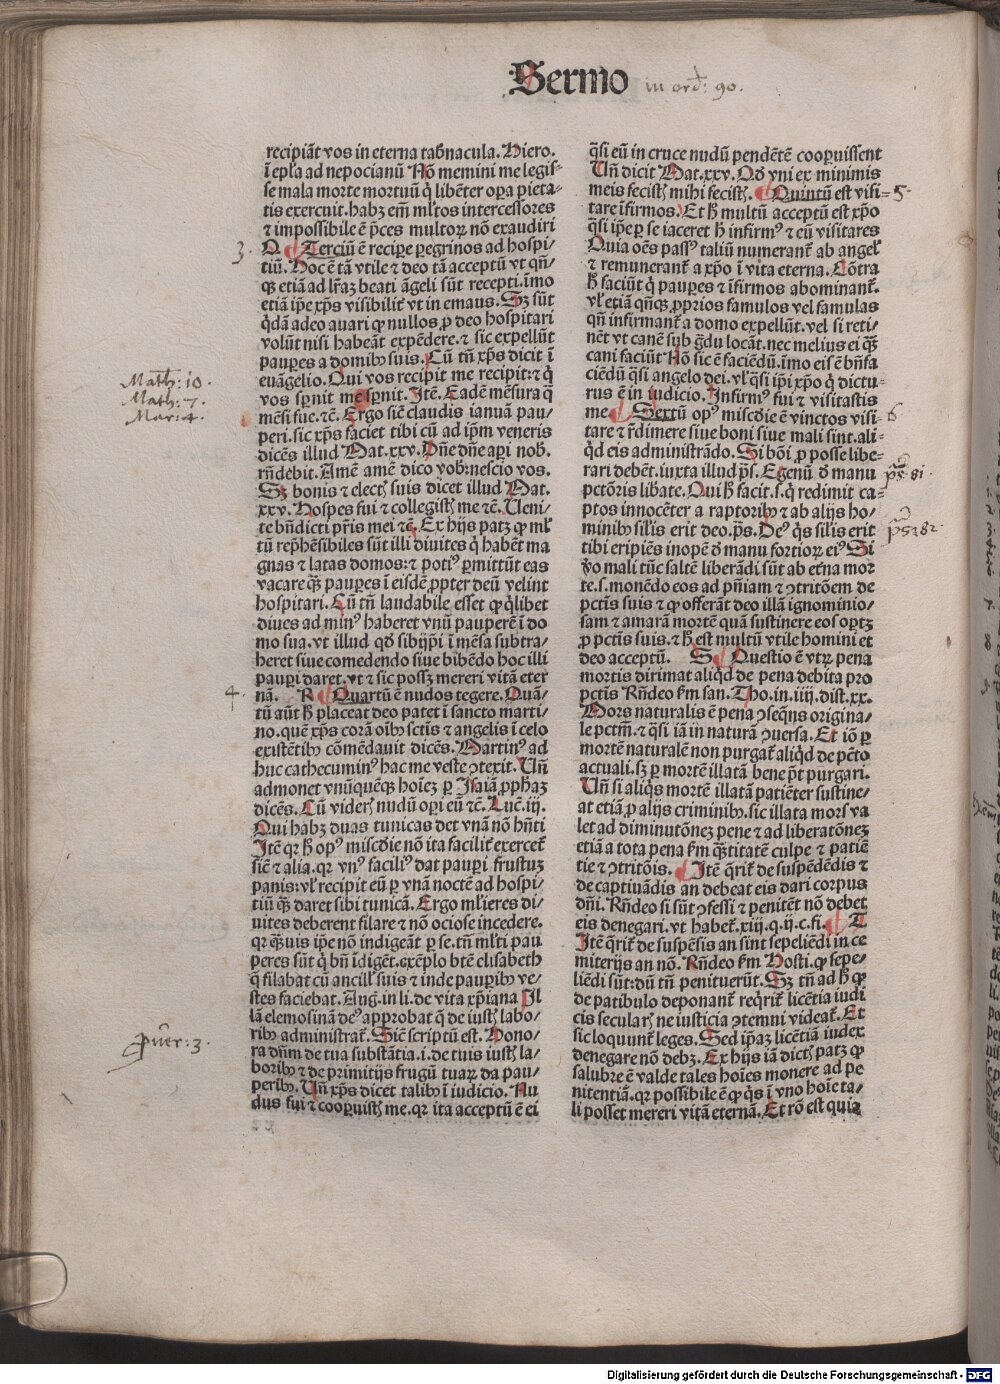 Sermo in ord: 90.
recipiāt vos in eterna tab̄nacula. Hiero.
ī epl̄a ad nepocianū Nō memini me legis⸗
se mala morte mortuū q̇ libēter oꝑa pieta⸗
tis exercuit. habꝫ em̄ ml̄tos intercessores
⁊ impossibile ē p̄ces multoꝝ nō exaudiri
3. Q ¶ Terciū ē recipe ꝑegrinos ad hospi⸗
tiū. Hoc ē tā vtile ⁊ deo tā acceptū vt qn̄⸗
qꝫ etiā ad lr̄aꝫ beati āgeli sūt recepti. īmo
etiā ip̄e xp̄s visibilit̄ vt in emaus. Sꝫ sūt
q̇dā adeo auari ꝙ nullos ꝓ deo hospitari
volūt nisi habeāt expēdere. ⁊ sic expellūt
pauꝑes a domibꝰ suis. Cū tn̄ xp̄s dicit ī
Math: 10.
euāgelio. Qui vos recipit me recipit: ⁊ q̇
Math: 7.
vos sꝑnit me sꝑnit. Itē. Eadē mēsura q̄
Mar: 4.
mēsi fue. ⁊c̄. Ergo sič claudis ianuā pau⸗
peri. sic xp̄s faciet tibi cū ad ip̄m veneris
dicēs illud Mat. xxv. Dn̄e dn̄e aꝑi nob̄.
rn̄debit. Amē amē dico vob̄: nescio vos.
Sꝫ bonis ⁊ electꝭ suis dicet illud Mat.
xxv. Hospes fui ⁊ collegistꝭ me ⁊c̄. Ueni⸗
te bn̄dicti pr̄is mei ⁊c̄. Ex hijs patꝫ ꝙ ml̄
tū rep̄hēsibiles sūt illi diuites q̇ habēt ma
gnas ⁊ latas domos: ⁊ potiꝰ ꝑmittūt eas
vacare qꝫ pauꝑes ī eisdē ꝓpter deū velint
hospitari. Cū tn̄ laudabile esset ꝙ q̇libet
diues ad minꝰ haberet vnū pauꝑem ī do
mo sua. vt illud qd̄ sibijp̄i ī mēsa subtra⸗
heret siue comedendo siue bibēdo hoc illi
pauꝑi daret. vt ⁊ sic possꝫ mereri vitā eter
4. nā. R ¶ Quartū ē nudos tegere. Quā⸗
tū aūt h̄ placeat deo patet ī sancto marti⸗
no. quē xp̄s corā oībꝰ sctīs ⁊ angelis ī celo
existētibꝰ cōmēdauit dicēs. Martinꝰ ad
huc cathecuminꝰ hac me veste ꝯtexit. Un̄
admonet vnūquēqꝫ hoīeꝫ ꝑ Isaiā ꝓphaꝫ
dicēs. Cū viderꝭ nudū oꝑi eū ⁊c̄. Luč. iij.
Qui habꝫ duas tunicas det vnā nō hn̄ti
Itē qr̄ h̄ opꝰ mīscdie nō ita facilit̄ exercet̄
sič ⁊ alia. qr̄ vnꝰ faciliꝰ dat pauꝑi frustuꝫ
panis: vl̄ recipit eū ꝑ vnā noctē ad hospi⸗
tiū qꝫ daret sibi tunicā. Ergo ml̄ieres di⸗
uites deberent filare ⁊ nō ociose incedere.
qr̄ qꝫuis ip̄e nō indigeāt ꝑ se. tn̄ ml̄ti pau
peres sūt q̇ bn̄ īdigēt. exēplo btē elisabeth
q̄ filabat cū ancillꝭ suis ⁊ inde pauꝑibꝰ ve⸗
stes faciebat. Aug. in li. de vita xp̄iana Il
lā elemosinā deꝰ approbat q̄ de iustꝭ labo⸗
ribꝰ administrat̄. Sič scriptū est. Hono⸗
Prouer: 3.
ra dn̄m de tua substātia. i. de tuis iustꝭ la⸗
boribꝰ ⁊ de primitijs frugū tuaꝝ da pau⸗
peribꝰ. Un̄ xp̄s dicet talibꝰ ī iudicio. Nu
dus fui ⁊ cooꝑuistꝭ me. qr̄ ita acceptū ē ei
q̄si eū in cruce nudū pendētē cooꝑuissent
Un̄ dicit Mat. xxv. Qd̄ vni ex minimis
meis fecistꝭ mihi fecistꝭ. ¶ Quintū est visi⸗ 5.
tare īfirmos. Et h̄ multū acceptū est xp̄o
q̄si ip̄e ꝑ se iaceret h̄ infirmꝰ ⁊ eū visitares
Quia oēs passꝰ taliū numerant̄ ab angel̄
⁊ remunerant̄ a xp̄o ī vita eterna. Cōtra
h̄ faciūt q̇ pauꝑes ⁊ īfirmos abominant̄.
vl̄ etiā qn̄qꝫ ꝓprios famulos vel famulas
qn̄ infirmant̄ a domo expellūt. vel si reti⸗
nēt vt canē sub g̈du locāt. nec melius ei qꝫ
cani faciūt Nō sic ē faciēdū. īmo eis ē bn̄fa
ciēdū q̄si angelo dei. vl̄ q̄si ip̄i xp̄o q̇ dictu⸗
rus ē in iudicio. Infirmꝰ fui ⁊ visitastis
me ¶ Sextū opꝰ mīscdie ē vinctos visi⸗ 6
tare ⁊ r̄dimere siue boni siue mali sint. ali⸗
q̇d eis administrādo. Si bōi ꝓ posse libe⸗
rari debēt. iuxta illud ps̄. Egenū d̄ manu ps: 81.
pctōris libate. Qui h̄ facit. s. q̇ redimit ca⸗
ptos innocēter a raptoribꝰ ⁊ ab alijs ho⸗
minibꝰ silis erit deo. ps̄. Deꝰ q̇s silis erit ps: 82.
tibi eripiēs inopē d̄ manu fortioꝝ eiꝰ Si
ꝟo mali tūc saltē liberādi sūt ab etn̄a mor
te. s. monēdo eos ad pn̄iam ⁊ ꝯtritōem de
pctīs suis ⁊ ꝙ offerāt deo illā ignominio⸗
sam ⁊ amarā mortē quā sustinere eos oꝑtꝫ
ꝓ pctīs suis. ⁊ h̄ est multū vtile homini et
deo acceptū. S ¶ Questio ē vtꝝ pena
mortis dirimat aliq̇d de pena debita pro
pctīs Rn̄deo km̄ san. Tho. in. iiij. dist. xx.
Mors naturalis ē pena ꝯseqn̄s origina⸗
le pctm̄. ⁊ q̄si iā in naturā ꝯuersa. Et iō ꝑ
mortē naturalē non purgat̄ aliq̇d de pctō
actuali. sꝫ ꝑ mortē illatā bene pt̄ purgari.
Un̄ si aliq̇s mortē illatā patiēter sustine⸗
at etiā ꝓ alijs criminibꝰ. sic illata mors va
let ad diminutōneꝫ pene ⁊ ad liberatōneꝫ
etiā a tota pena km̄ qꝫtitatē culpe ⁊ patiē
tie ⁊ ꝯtritōis. ¶ Itē q̄rit̄ de suspēdēdis ⁊
de captiuādis an debeat eis dari corpus
dn̄i. Rn̄deo si sūt ꝯfessi ⁊ penitēt nō debet
eis denegari. vt habet̄. xiij. q. ij. c. fi. ¶ T
Itē q̄rit̄ de suspēsis an sint sepeliēdi in ce
miterijs an nō. Rn̄deo km̄ Hosti. ꝙ sepe⸗
liēdi sūt: dū tn̄ penituerūt. Sꝫ tn̄ ad h̄ ꝙ
de patibulo deponant̄ req̇rit̄ licētia iudi
cis secularꝭ ne iusticia ꝯtemni videat̄. Et
sic loquunt̄ leges. Sed ip̄aꝫ licētiā iudex
denegare nō debꝫ. Ex hijs iā dictꝭ patꝫ ꝙ
salubre ē valde tales hoīes monere ad pe
nitentiā. qr̄ possibile ē ꝙ q̇s ī vno hoīe ta⸗
li posset mereri vitā eternā. Et rō est quia
Digitalisierung gefördert durch die Deutsche Forschungsgemeinschaft - DFG